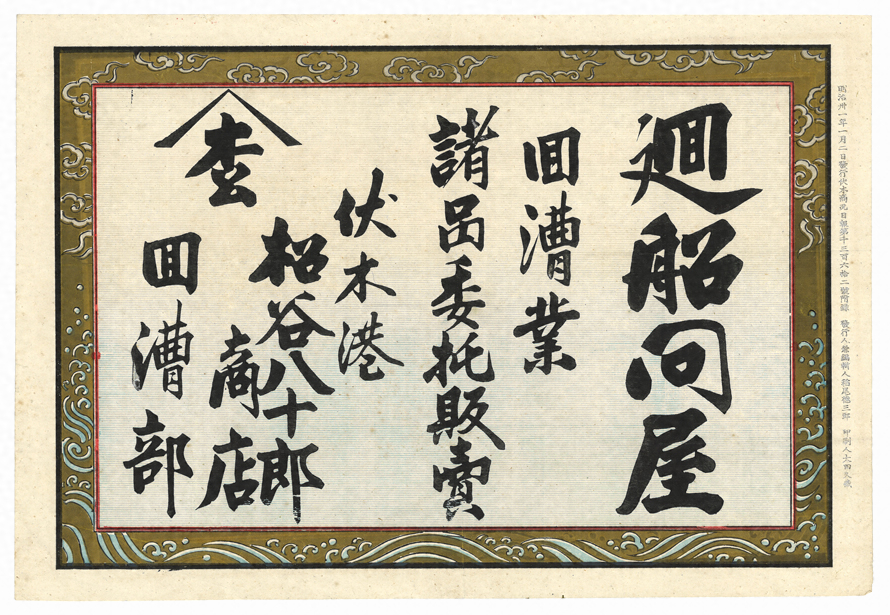 明治卅一年一月二日發行伏木商況日報第千三百六拾二號附録 發行人兼編輯人 三郎 印刷人
廻船問屋
回漕業
諸品委托販賣
伏木港
枩谷八十郎
商店
回漕部